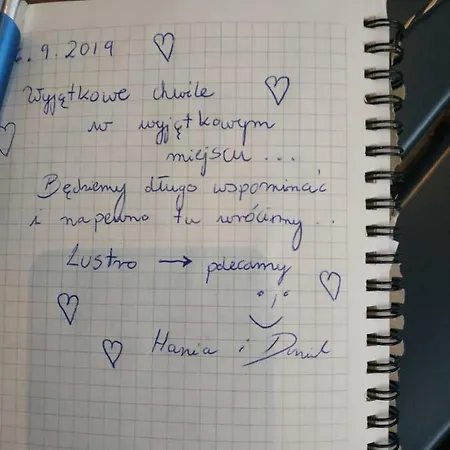 .9.2019
Wyjątkowe chwile
w wyjątkowym
miejscu ...
Będziemy długo wspominać
i napewno tu wrócimy ..
Lustro → polecamy
Hania i